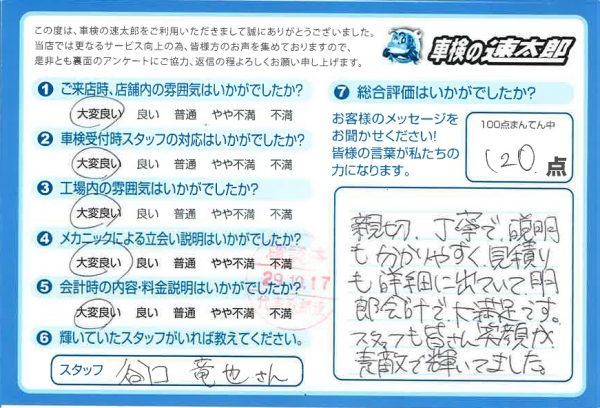 この度は、車検の速太郎をご利用いただきまして誠にありがとうございました。
当店では更なるサービス向上の為、皆様方のお声を集めておりますので、
是非とも裏面のアンケートにご協力、返信の程よろしくお願い申し上げます。
車検の速太郎
1 ご来店時、店舗内の雰囲気はいかがでしたか?
大変良い 良い 普通 やや不満 不満
2 車検受付時スタッフの対応はいかがでしたか?
大変良い 良い 普通 やや不満 不満
3 工場内の雰囲気はいかがでしたか?
大変良い 良い 普通 やや不満 不満
4 メカニックによる立会い説明はいかがでしたか?
大変良い 良い 普通 やや不満 不満
5 会計時の内容・料金説明はいかがでしたか?
大変良い 良い 普通 やや不満 不満
6 輝いていたスタッフがいれば教えてください。
スタッフ 谷口 竜也さん
29.10.17
7 総合評価はいかがでしたか?
お客様のメッセージを
お聞かせください!
皆様の言葉が私たちの
力になります。
100点まんてん中
120 点
親切、丁寧で、説明
も分かりやすく見積り
も詳細に出ていて明
朗会計で、大満足です。
スタッフも皆さん笑顔が
素敵で輝いてました。